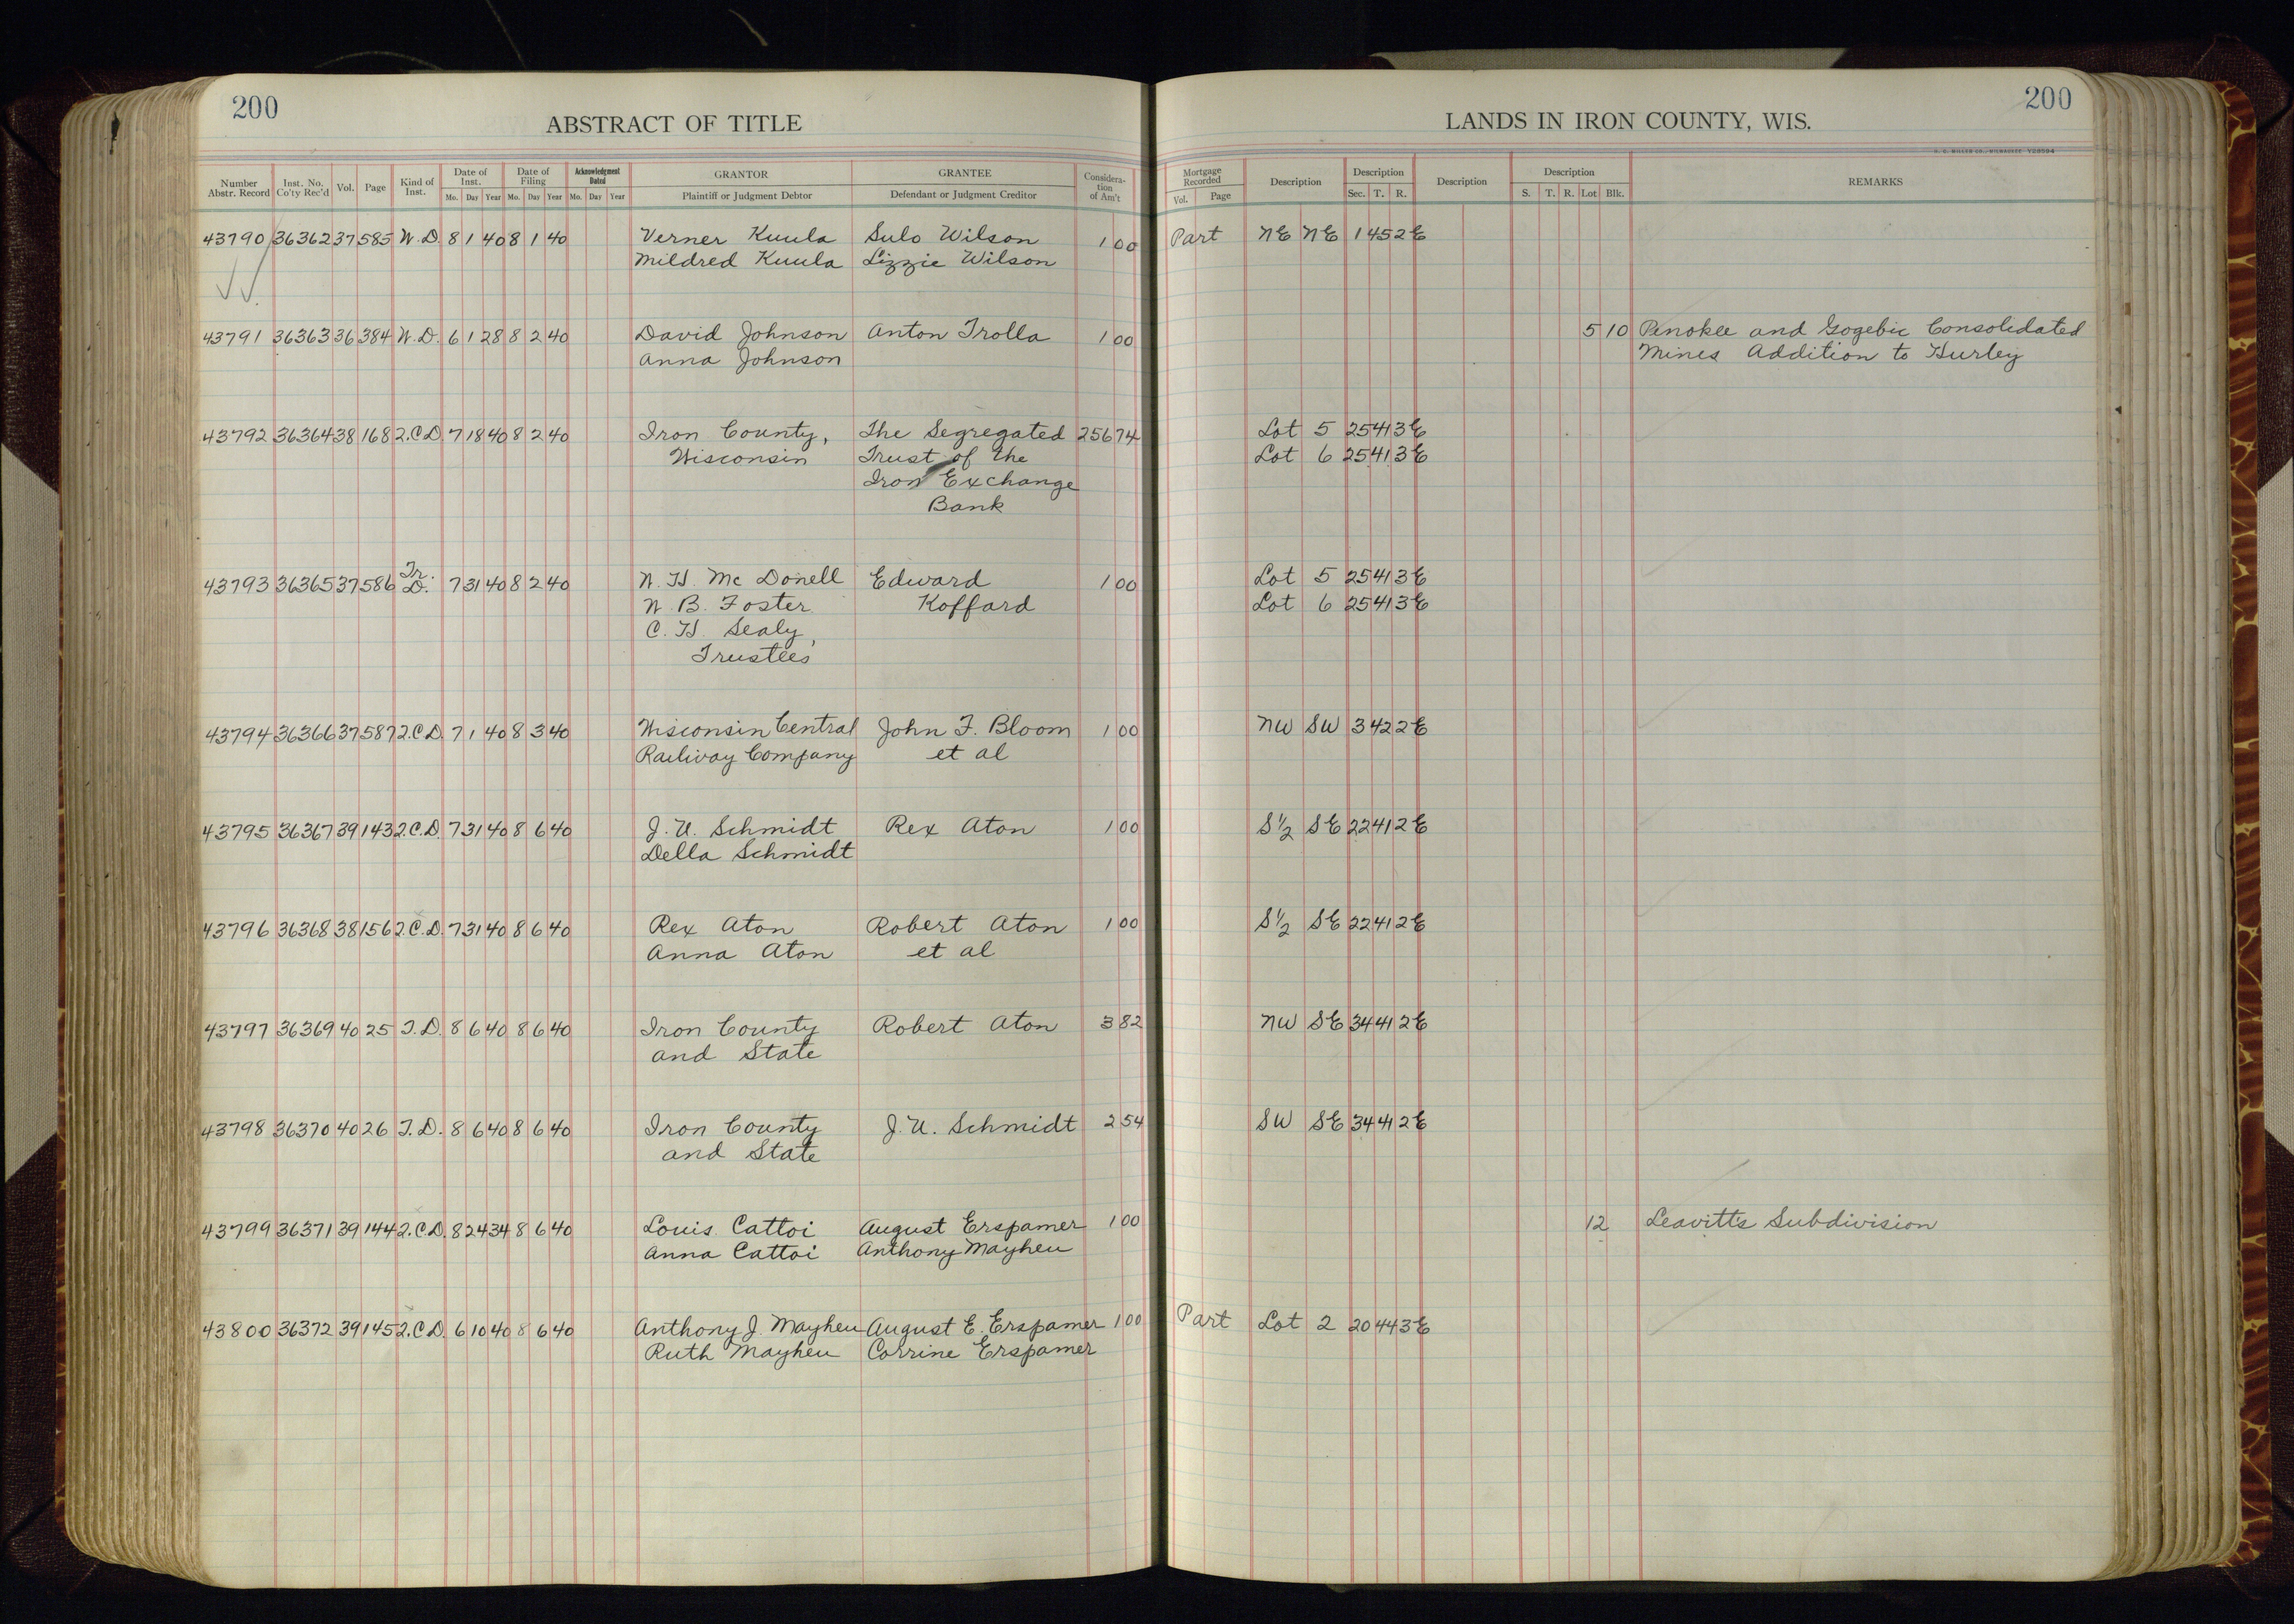 200
ABSTRACT OF TITLE
Number Abstr. Record Inst. No. Co'ty Rec'd Vol. Page Kind of Inst. Date of Inst. Mo. Day Year Date of Filing Mo. Day Year Acknowledgment Dated Mo. Day Year GRANTOR Plaintiff or Judgment Debtor GRANTEE Defendant or Judgment Creditor Considera- tion of Am't
43790 36362 37 585 W.D. 8 1 40 8 1 40 Verner Kuula Sulo Wilson 1 00
Mildred Kuula Lizzie Wilson
43791 36363 36 384 W.D. 6 1 28 8 2 40 David Johnson Anton Trolla 1 00
Anna Johnson
43792 36364 38 168 2.C.D. 7 18 40 8 2 40 Iron County, The Segregated 256 74
Wisconsin Trust of the
Iron Exchange
Bank
43793 36365 37 586 Tr. D. 7 31 40 8 2 40 W. H. Mc Donell Edward 1 00
W. B. Foster Koffard
C. H. Sealy,
Trustees
43794 36366 37 587 2.C.D. 7 1 40 8 3 40 Wisconsin Central John F. Bloom 1 00
Railway Company et al
43795 36367 39 143 2.C.D. 7 31 40 8 6 40 J. U. Schmidt Rex Aton 1 00
Della Schmidt
43796 36368 38 156 2.C.D. 7 31 40 8 6 40 Rex Aton Robert Aton 1 00
Anna Aton et al
43797 36369 40 25 T.D. 8 6 40 8 6 40 Iron County Robert Aton 3 82
and State
43798 36370 40 26 T.D. 8 6 40 8 6 40 Iron County J. U. Schmidt 2 54
and State
43799 36371 39 144 2.C.D. 8 24 34 8 6 40 Louis Cattoi August Erspamer 1 00
Anna Cattoi Anthony Mayheu
43800 36372 39 145 2.C.D. 6 10 40 8 6 40 Anthony J. Mayheu August E. Erspamer 1 00
Ruth Mayheu Corrine Erspamer
200
LANDS IN IRON COUNTY, WIS.
Mortgage Recorded Vol. Page Description Description Sec. T. R. Description Description S. T. R. Lot Blk. REMARKS
Part NE NE 1 45 2E
5 10 Penokee and Gogebic Consolidated
Mines Addition to Hurley
Lot 5 25 41 3E
Lot 6 25 41 3E
Lot 5 25 41 3E
Lot 6 25 41 3E
NW SW 3 42 2E
S½ SE 22 41 2E
S½ SE 22 41 2E
NW SE 34 41 2E
SW SE 34 41 2E
12 Leavitt's Subdivision
Part Lot 2 20 44 3E